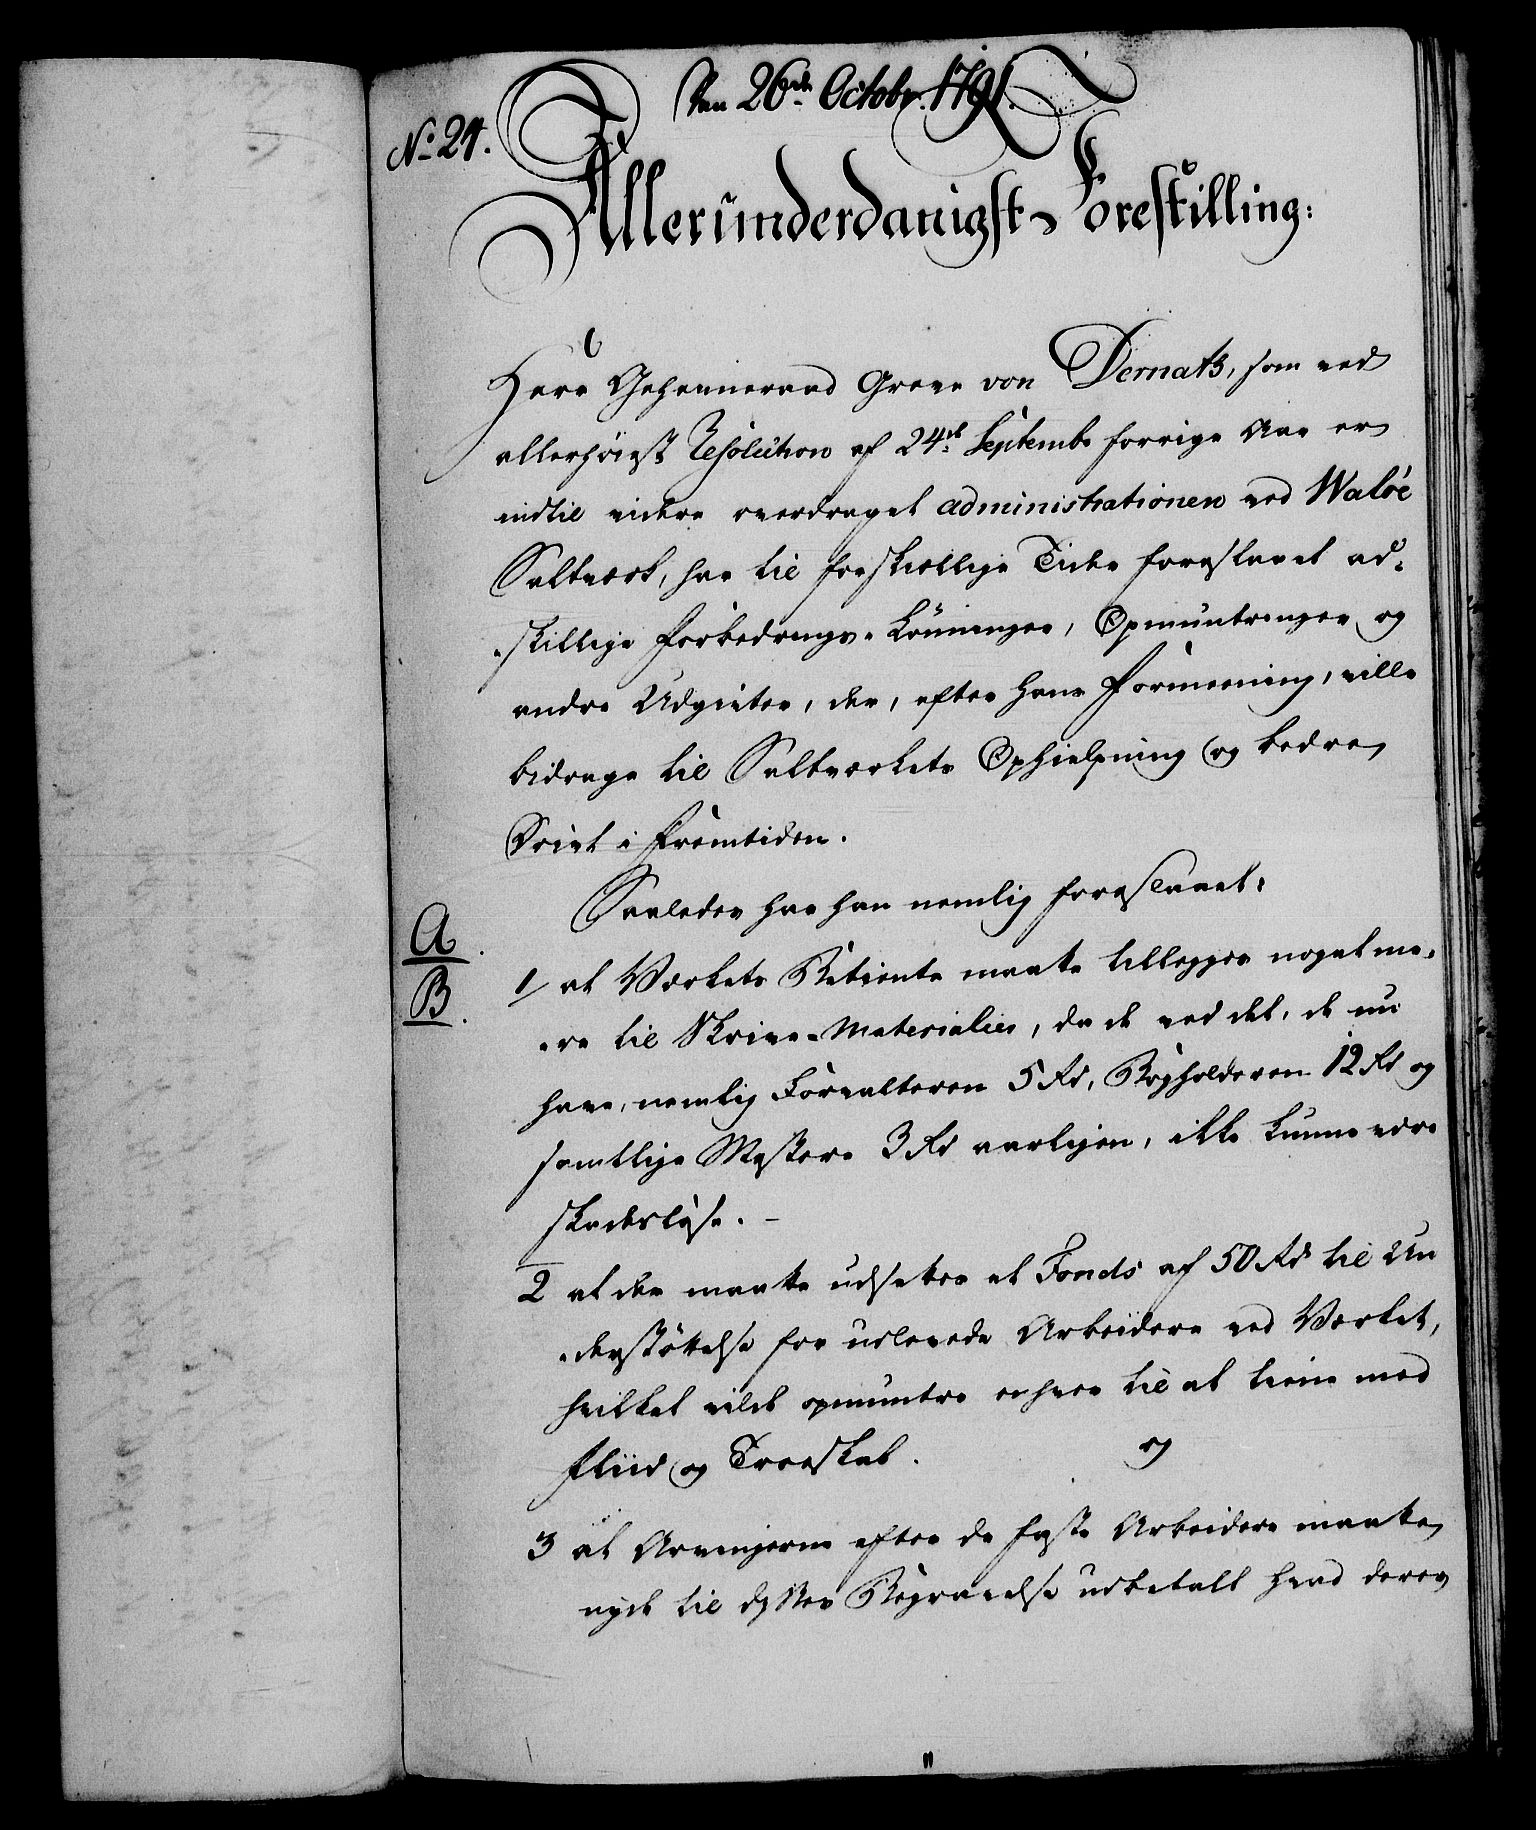 Den 26de Octobr. 1791.
No 24.
Allerunderdanigst Forestilling:
Herr Geheimeraad Greve von Dernath, som ved
allerhøiest Resolution af 24de Septembr forrige Aar er
indtil videre overdraget administrationen ved Waløe
Saltværk, har til forskiellige Tider foreslaaet ad-
-skillige Forbedrings-Lønninger, Opmuntringer og
andre Udgivter, der, efter hans Formeening, ville
bidrage til Saltværkets Ophielpning og bedre
Drivt i Fremtiden.
Saaledes har han nemlig foreslaaet:
A.
B.
1/ at Værkets Betiente maatte tillegges noget me-
-re til Skrive-Materialier, da de ved det, de nu
have, nemlig Forvalteren 5 Rd, Bogholderen 12 Rd og
samtlige Mestere 3 Rd aarligen, ikke kunne være
skadesløse. -
2 at der maatte udsættes et Fonds af 50 Rd til Un
-derstøttelse for udlevede Arbeidere ved Værket,
hvilket vilde opmuntre enhver til at tiene med
Fliid og Troeskab. og
3 at Arvingerne efter de faste Arbeidere maatte
nyde til disses Begravelse udbetalt hvad deres